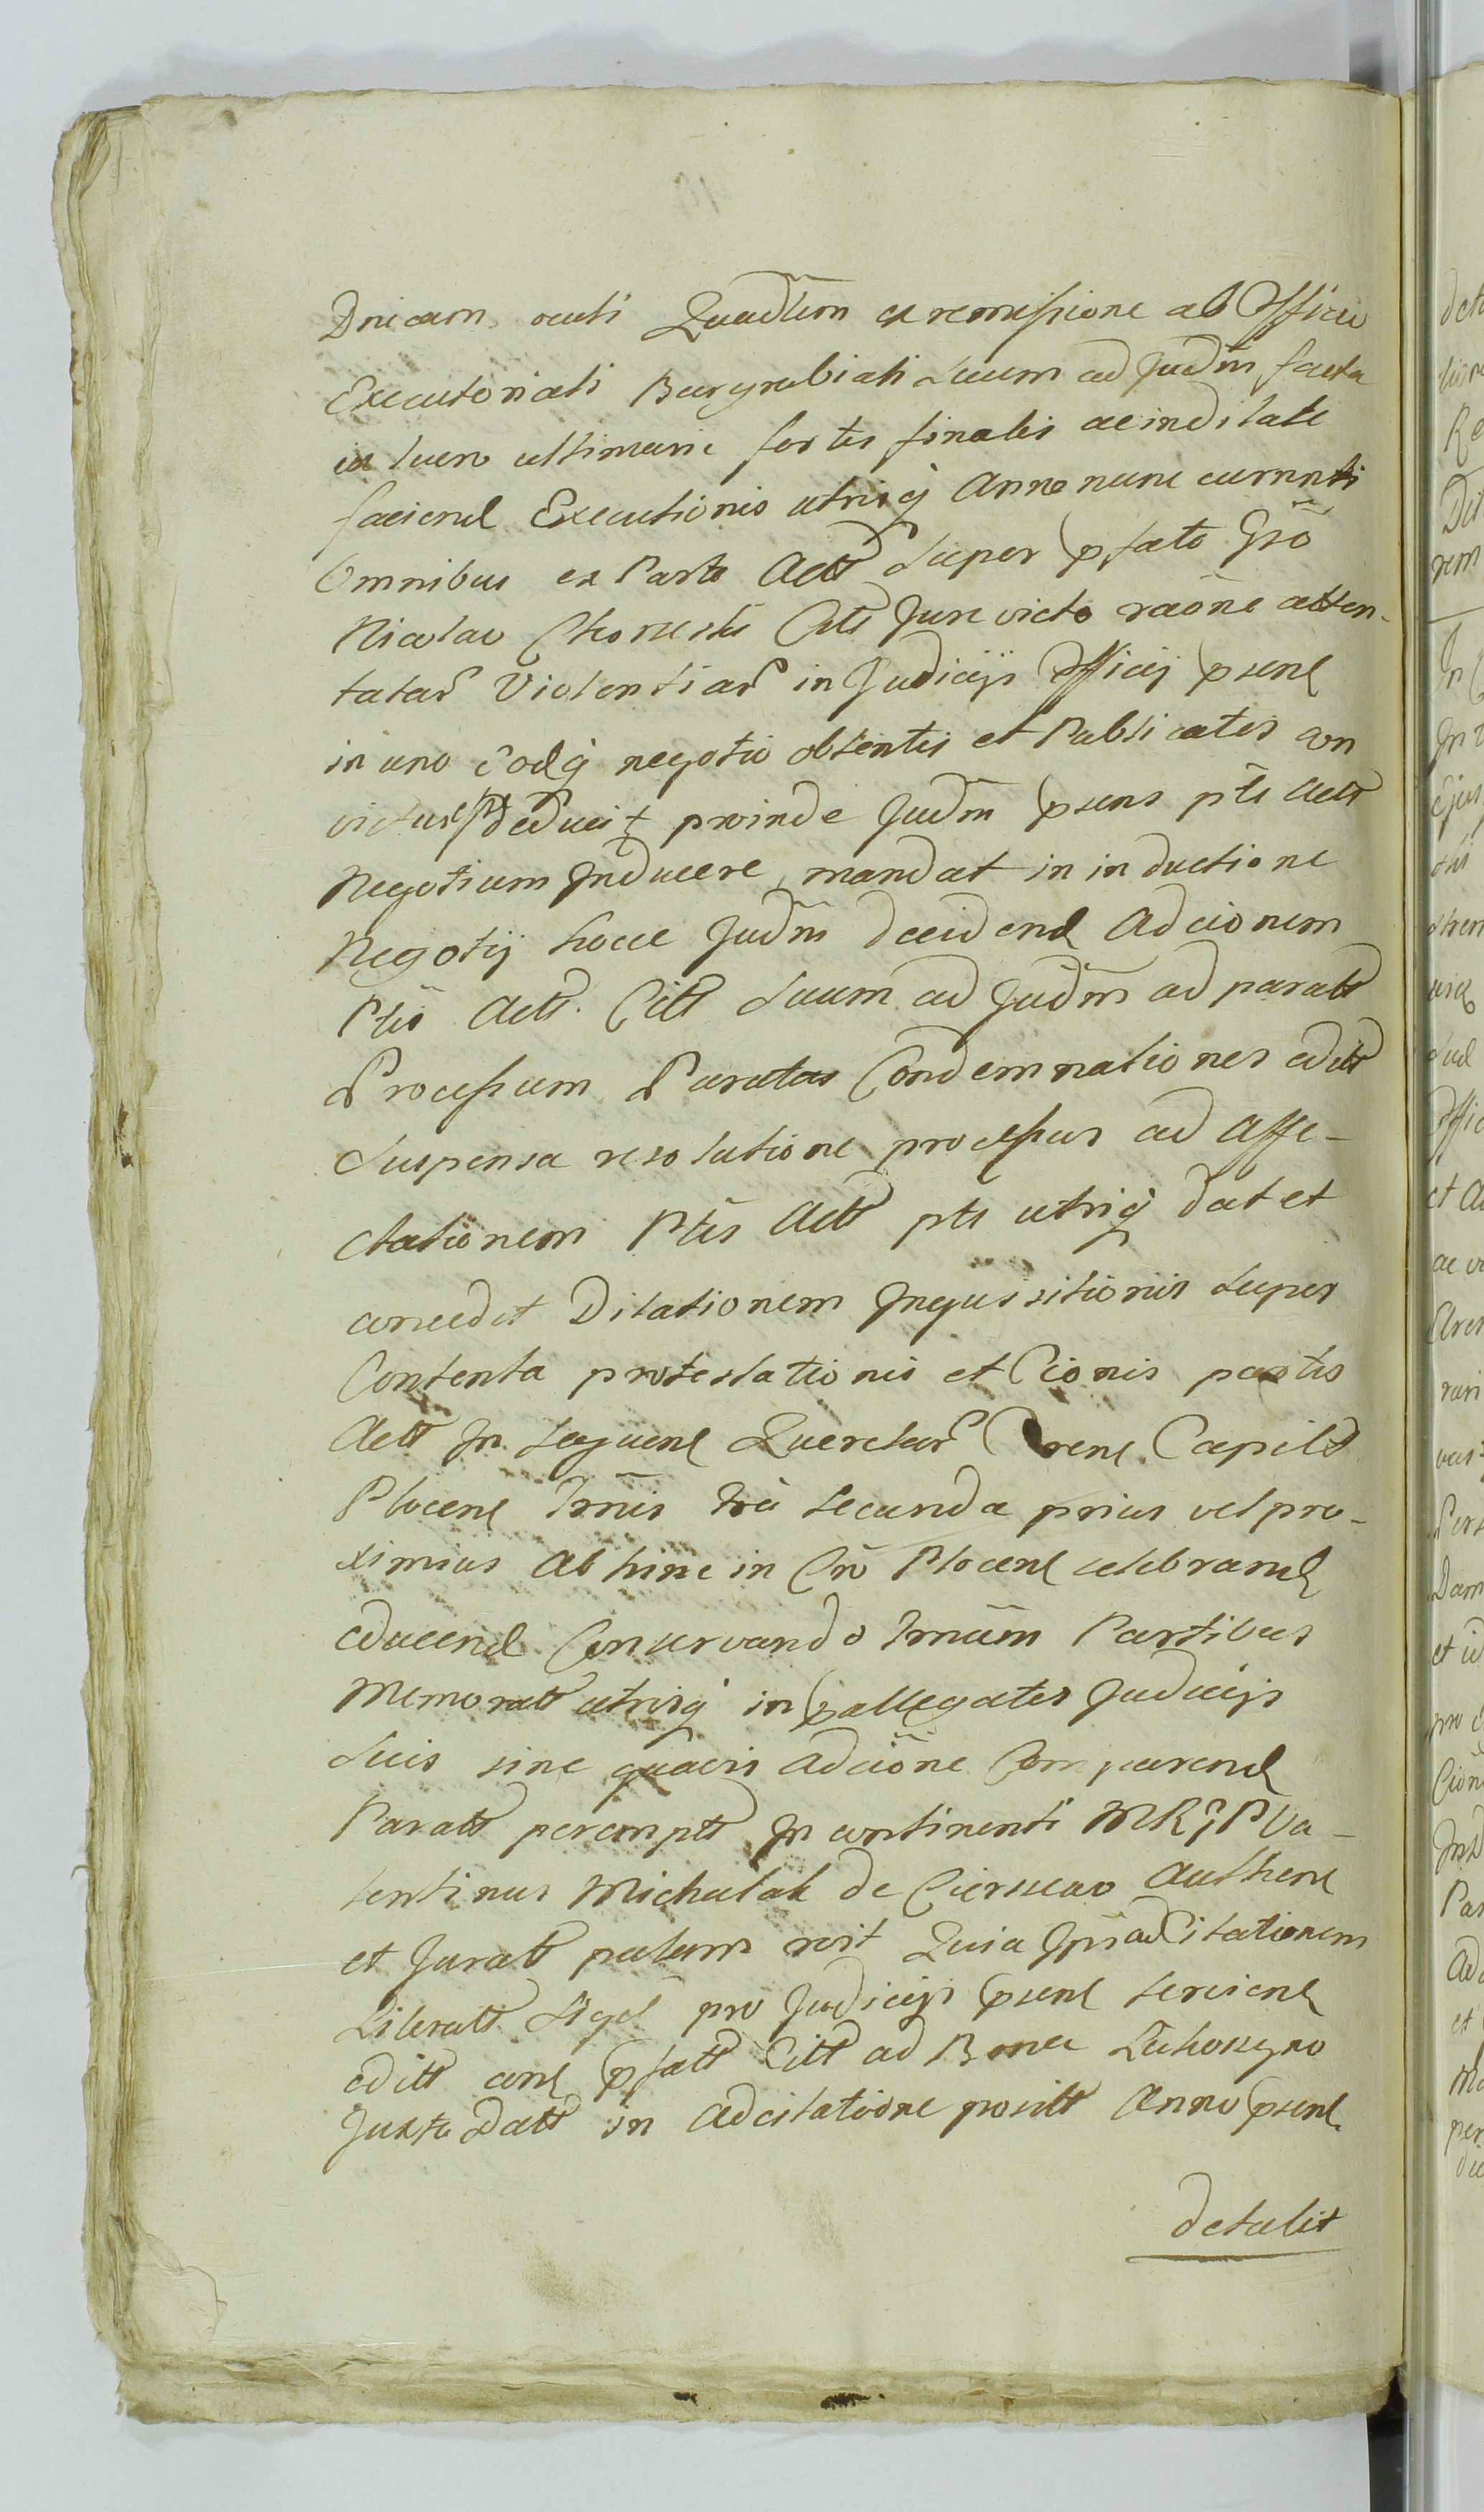 Dnicam oculi Quadlem ex remissione ab Officio
Executoriali Burgrabiali suum ad Judm facta
in luen ultimarie fortis finalis ac indilate
faciend Executionis utrisq Anno nunc currnti
Omnibus ex Parte Actt super pfato Gso
Nicolao Citt Jure victo raone atten-
tatar Violentiar in Judicijs Officij psent
in uno eodq negotio obtentis et Publicatis con
deducit proinde Judm psens pti Actt
Negotium Inducere mandat in inductione
Negotij hocce Judm decidend Adcionem
Ptis Actt. Citt suum ad Judm ad paratt
Processum Paratas Condemnationes editt
suspensa resolutione processus ad affe-
ctationem Ptis Actt pti utriq dat et
concedit Dilationem Inquisitionis super
Contenta protestationis et Cionis partis
Actt In sequend Querelar Capitt
Plocens Trmis secunda prius vel pro-
ximius Abhinc in Cro Plocens celebrand
educend Conservando Trmum Partibus
Memoratt utrisq in pallegatis Judicijs
suis sine quavis adcione Comparend
Paratt perempt In continenti MR P Va-
lentinus Michalak de Authent
et Juratt palam rcit Quia Ipse adCitationem
Literatt Sigil pro Judicijs psent servient
editt cont pfatt Citt ad Bona
Juxta Datt in adcitatione positt Anno psent
detulit